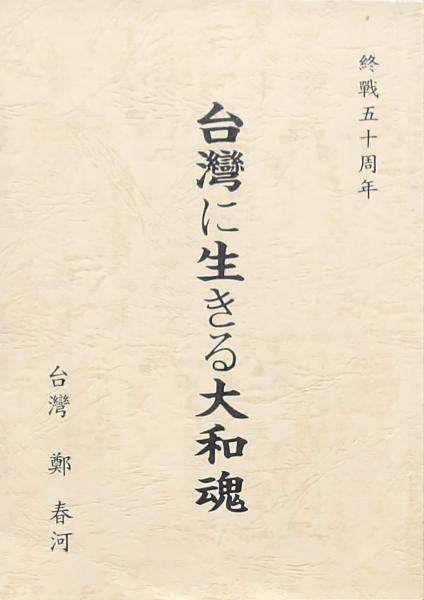 終戰五十周年
台灣に生きる大和魂
台灣 鄭 春河